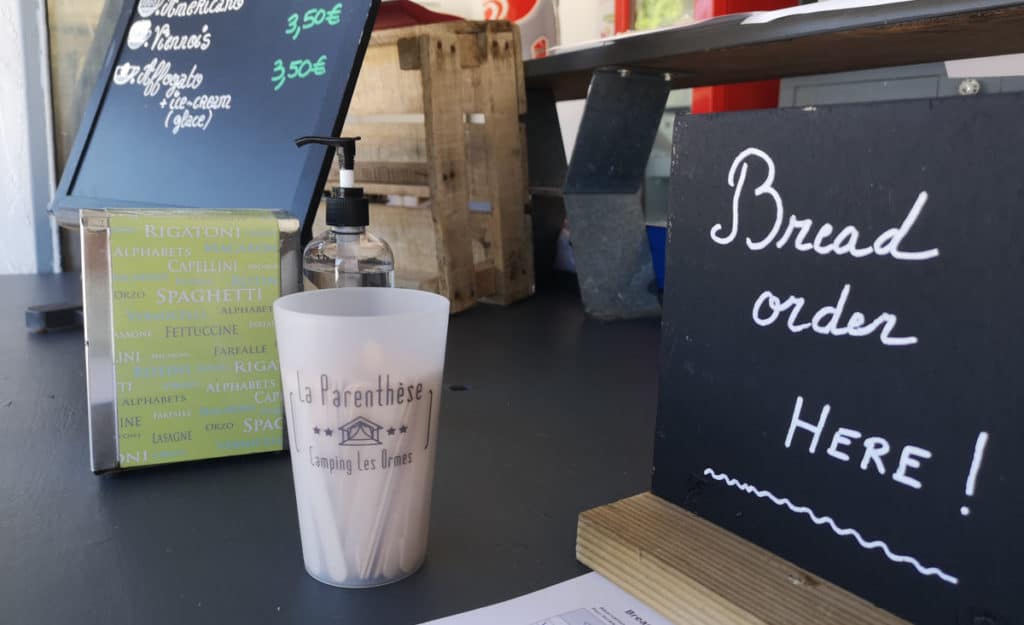 Americano
3,50€
Viennois
Affogato
3,50€
+ ice-cream
(glace)
RIGATONI
ALPHABETS
CAPELLINI
ORZO SPAGHETTI
ALPHABET
FETTUCCINE
FARFALLE
RIGAT
ALPHABETS
ALPHABETS
CAP
FARFALLE
LASAGNE ORZO SPAG
La Parenthèse
Camping Les Ormes
Bread
order
HERE!
Brea